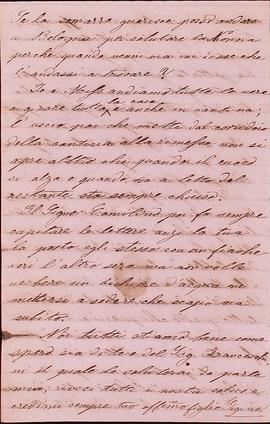 Se la somarra guarisce poss'd andare
a Bologna per salutare la Nonna
perché quando venni via mi disse che
l'andassi a trovare
Io e Miss andiamo tutte le sere
a girare tutta la casa e anche in cantina;
l'uscio poi che mette dal corridoio
della cantina alla remessa non si
apre altro che quando il cuoco
si alza e quando va a letto del
restante sta sempre chiuso.
Il Sigr. fa sempre
capitare le lettere anzi la tua
la portò egli stesso con un fiasche
ieri l'altro sera ma non volle
ne bere un bichiere d'acqua ne
mettersi a sedere che scapò via
subito.
Noi tutti stiamo bene come
spero sia di te e del Sig. Frances
ni il quale lo saluterai da parte
mia; ricevi tutti i nostri saluti e
credimi sempre tuo affmo figlio Gigino